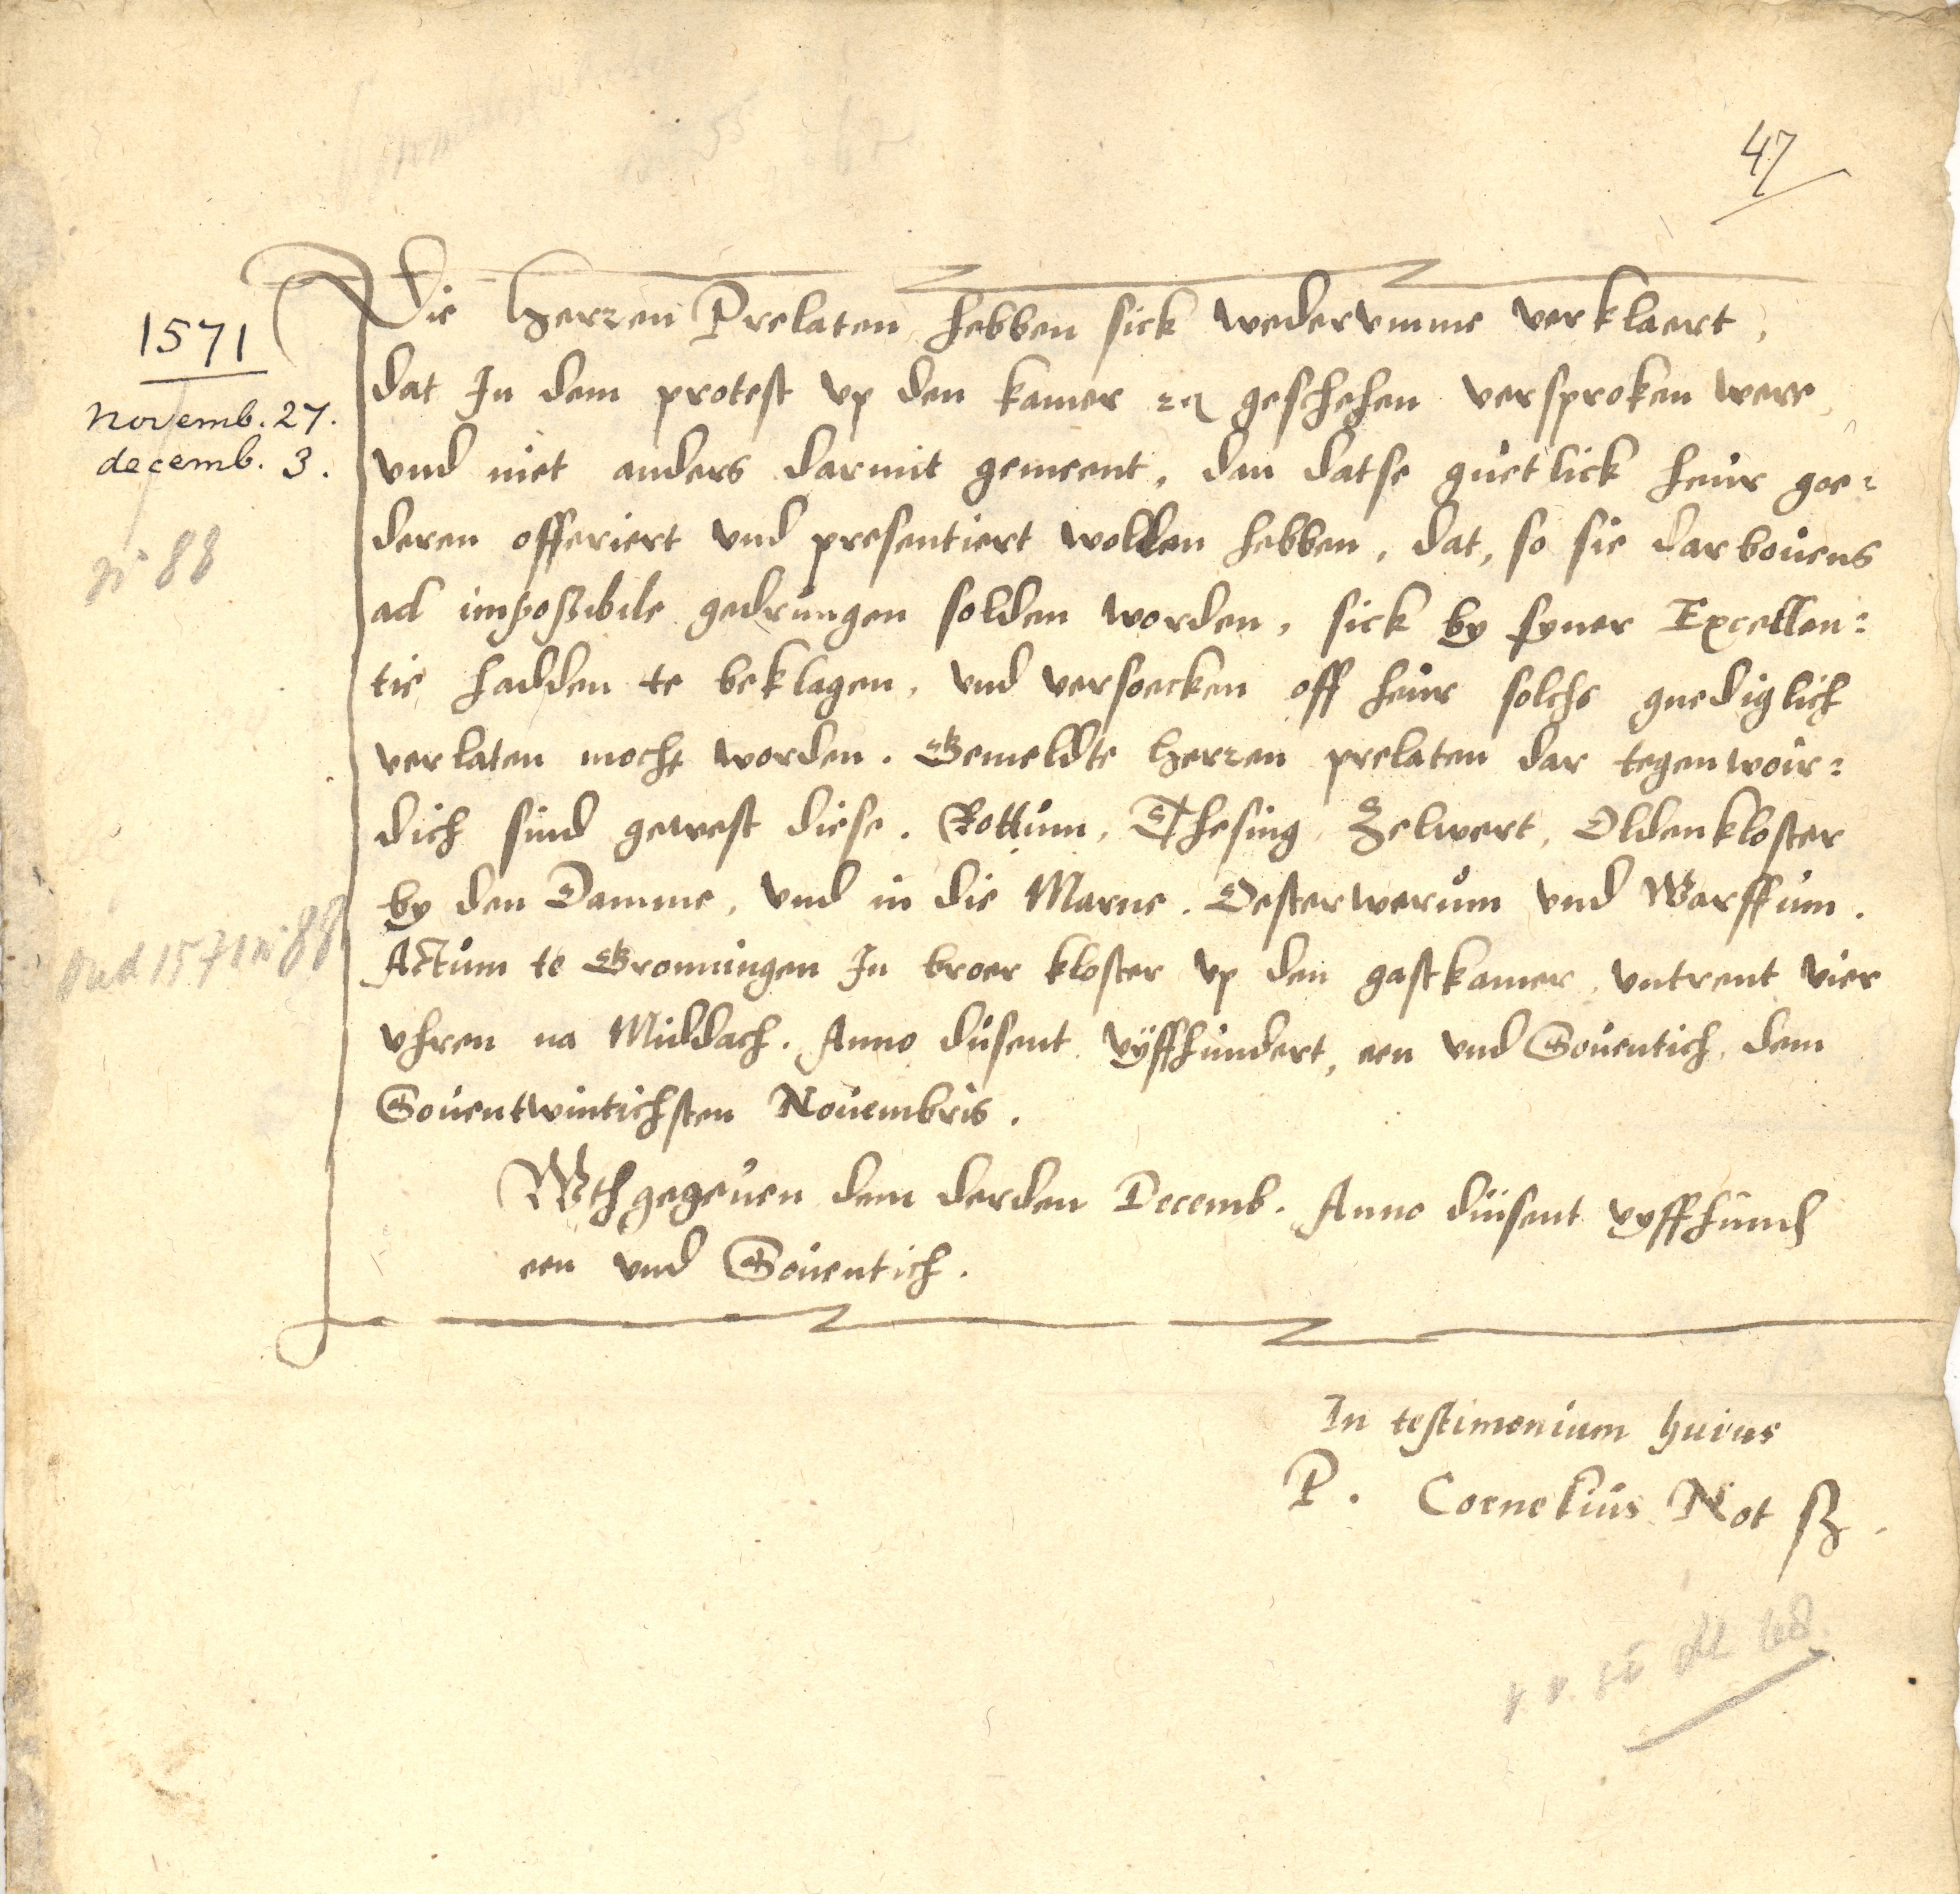 47
1571
Novemb. 27.
decemb. 3.
no 88
oud 1571 no 88
Die Herren Prelaten hebben sick wederumme verklaert,
dat In dem protest vp den kamer etc. geschehen versproken were,
vnd niet anders darmit gemeent, dan datse guetlick heur goe=
deren offeriert vnd presentiert wollen hebben, dat, so sie darbouens
ad impossibile gedrungen solden worden, sick by syner Excellen=
tie hadden te beklagen, vnd versoecken off heur solchs gnediglich
verlaten mocht worden. Gemeldte Herren prelaten dar tegenwoir=
dich sind gewest diese. Rottum, Thesing, Zelwert, Oldenkloster
by den Damme, vnd in die Marne. Oesterwerum vnd Warffum.
Actum te Gronningen In broer kloster vp den gastkamer, vntrent vier
vhren na Middach. Anno dusent vyffhundert, een vnd Souentich, dem
Souentwintichsten Nouembris.
Wthgegeuen dem derden Decemb. Anno duisent vyffhund
een vnd Souentich.
In testimonium huius
P. Cornelius Not sz.